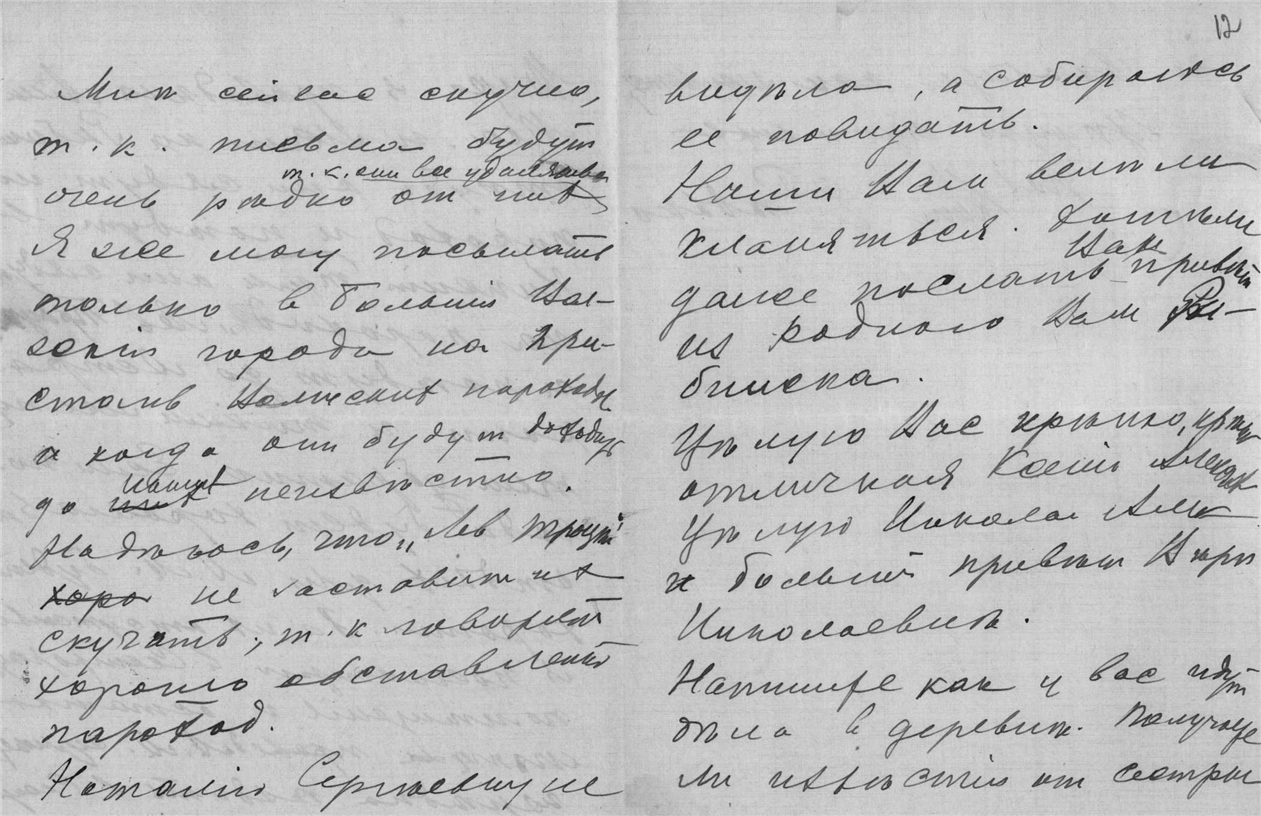 12
Мнѣ сейчас скучно,
т. к. письма будут
т. к. они все удаляются
очень рѣдко от них
Я же могу посылать
только в большiя Вол-
жскiя города на При-
стань Волжских пароходов
а когда они будут доходить
до наших неизвѣстно.
Надѣюсь, что „Лев Троцкiй
хоро не заставит их
скучать, т. к говорят
хорошо обставлен
пароход.
Наталiю Сергѣевну не
видѣла, а собираюсь
ее повидать.
Наши Вам велѣли
кланяться. Хотѣли
даже послать Вам привѣт
из родного Вам Ры-
бинска.
Цѣлую Вас крѣпко, крѣпко
отличная Ксенiя
Цѣлую Николая
и большой привѣт
Николаевич.
Напишите как у вас идут
дѣла в деревнѣ. Получаете
ли извѣстiя от сестры